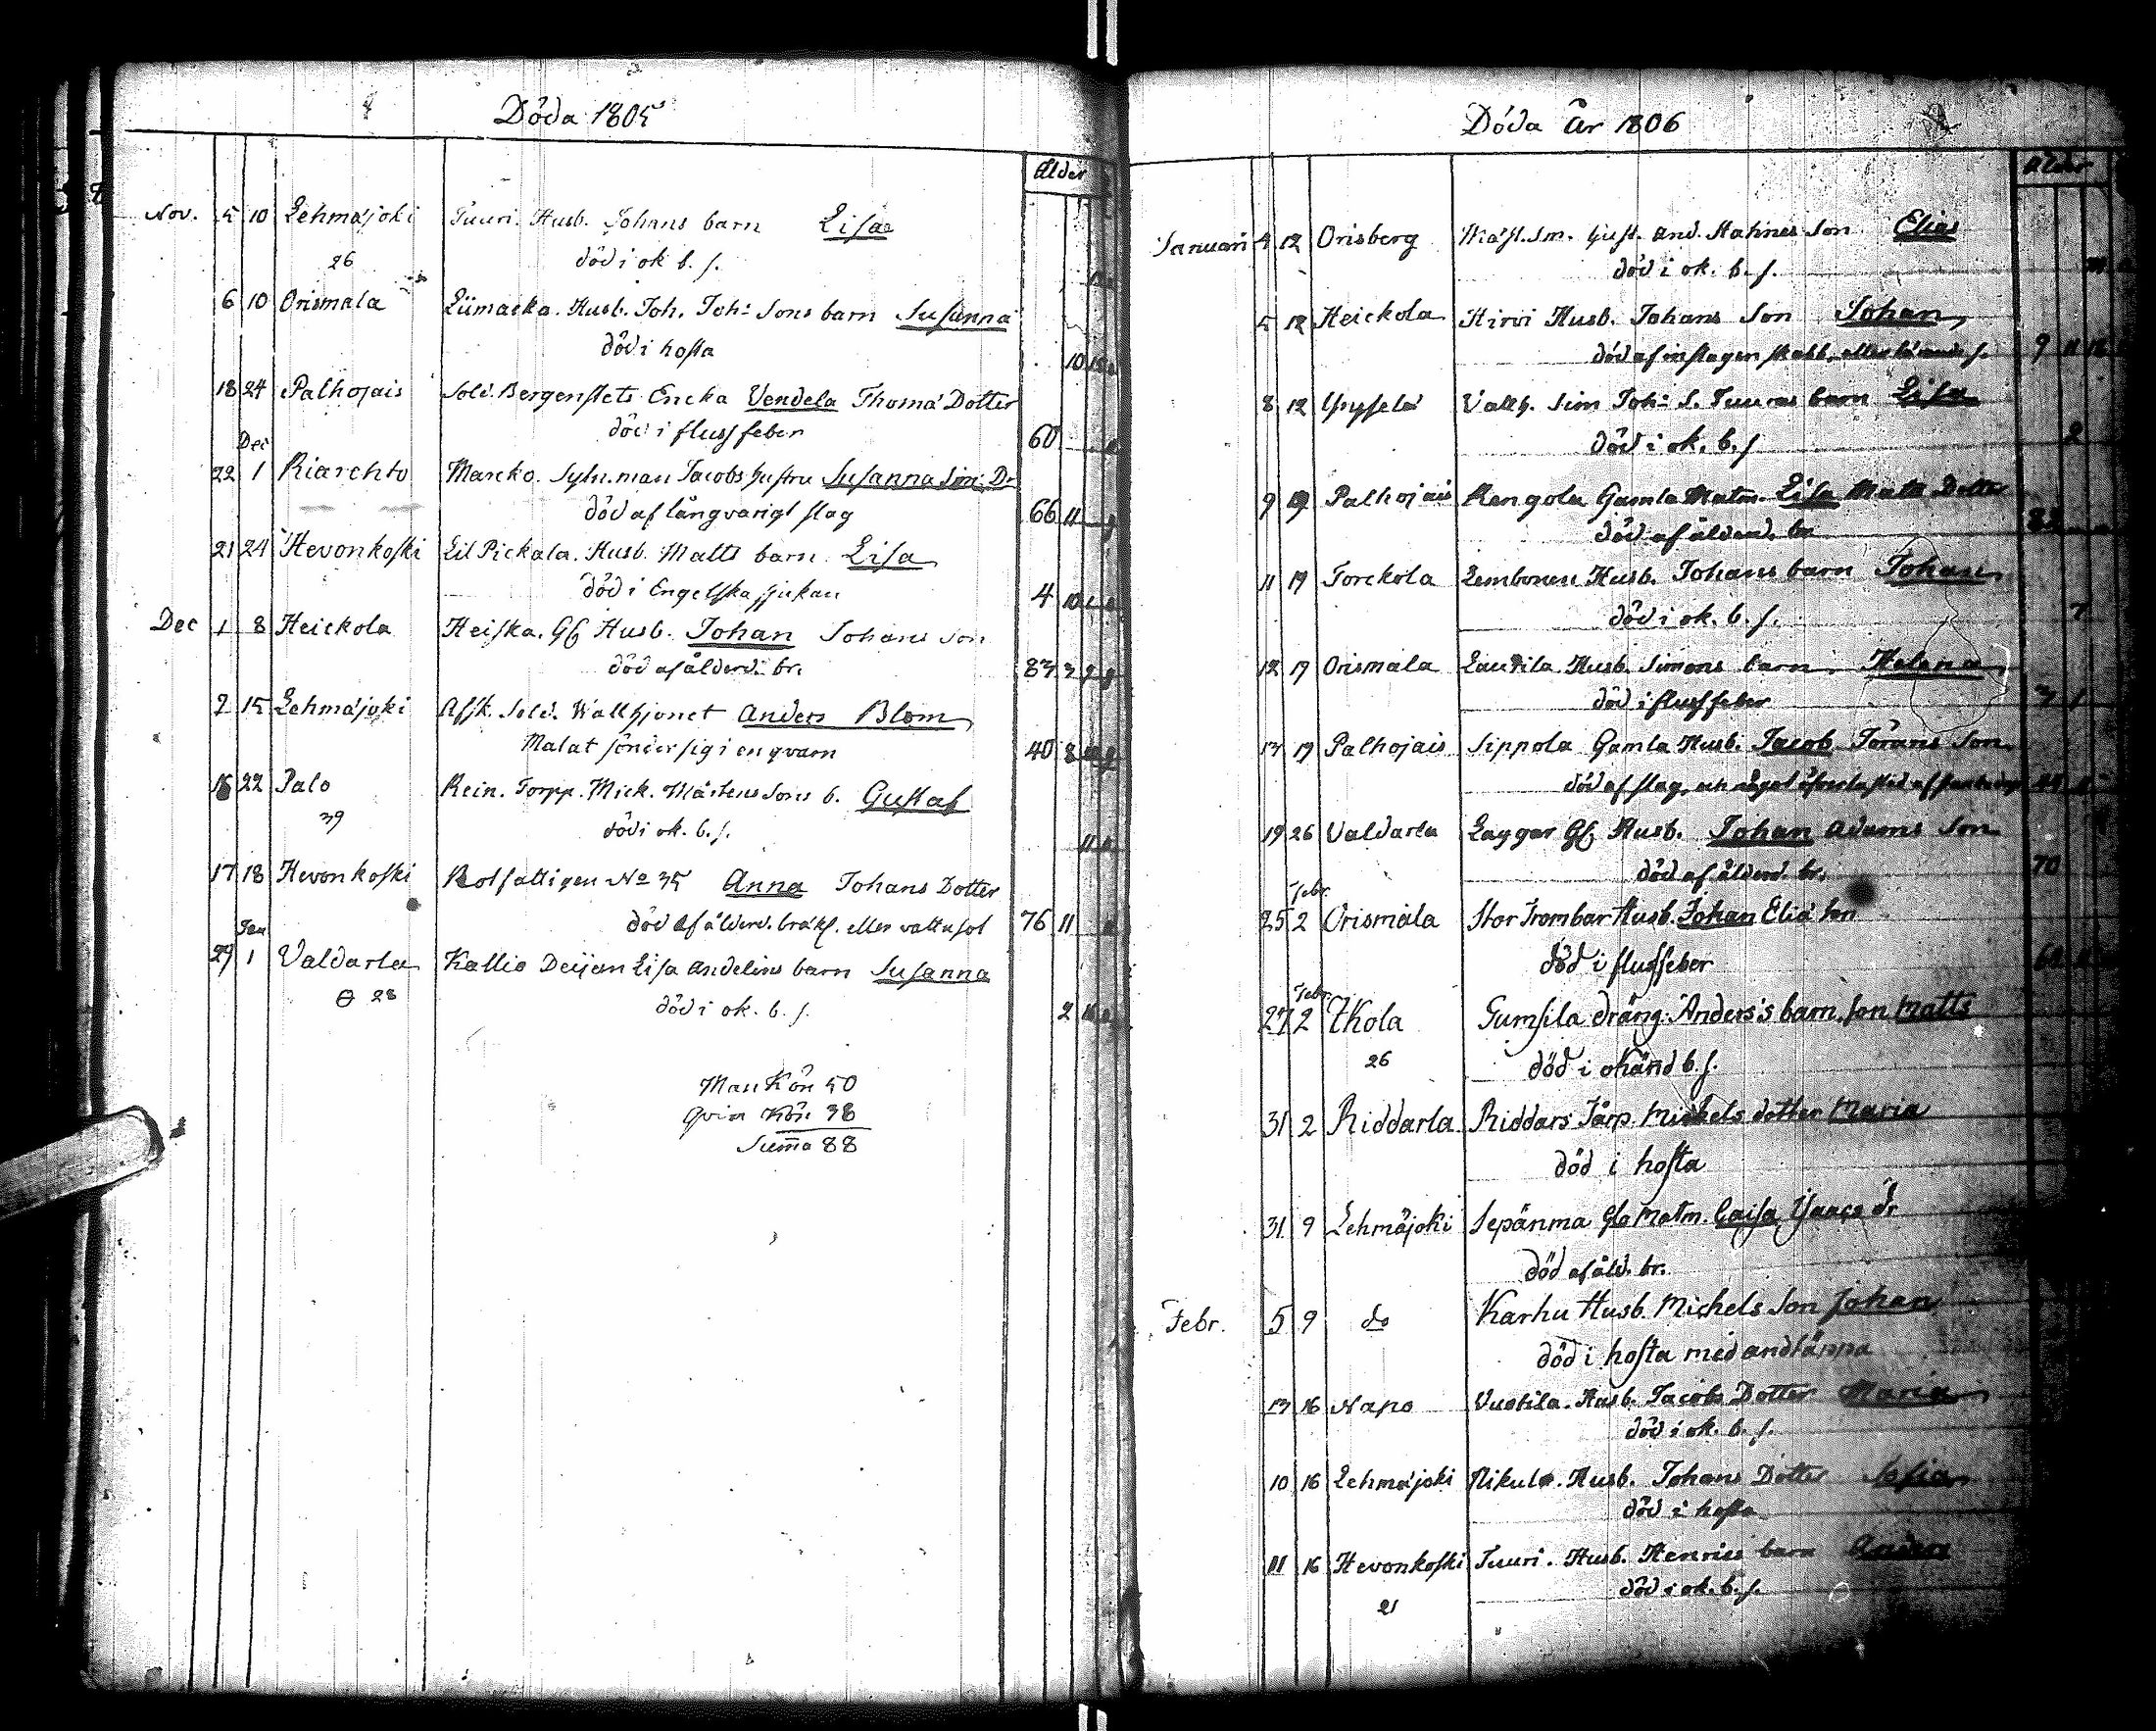 Döda 1805
Ålder
Nov. 5 10 Lehmäjoki Tuuri. Husb. Johans barn Lisa
26 död i ok. b. s.
6 10 Orismala Liimacka. Husb. Joh. Joh: Sons barn Susanna
död i hosta 10
18 24 Palhojais Sold. Bergenstets Encka Vendela Thoma Dotter
död i fluss feber 60
Dec
22 1 Kiarehto Marcko. Sytn.man Jacobs hustru Susanna Sim: Dr
död af långvarigt slag 66 11
21 24 Hevonkoski Lil Pickala. Husb. Matts barn Lisa
död i Engelska sjukan 4 10
Dec 1 8 Heickola Heiska. Gl Husb. Johan Johans Son
död af ålderd. br. 83 3 9
2 15 Lehmäjoki Afsk. Sold. Wallhjonet Anders Blom
Malat sönder sig i en qvarn 40 8
16 22 Palo Rein. Torpp. Mick. Mårtens Sons b. Gustaf
39 död i ok. b. s. 11
17 18 Hevonkoski Rotfattigen No 35 Anna Johans Dotter
död af ålderd. bräkl. eller vattusot 76 11
Jan
29 1 Valdarla Kallio Deijan Lisa Andelins barn Susanna
28 död i ok. b. s. 2
Man Kön 50
Qvin Kön 38
Summa 88
Döda År 1806
Ålder
Januari 4 12 Orisberg Gust. And. Stahnes Son Elias
död i ok. b. s.
5 12 Heickola Hirvi Husb. Johans Son Johan
död af inslagen skabb, eller s. 9 11
8 12 Vallh. Sim Joh: S. Tuuras barn Lisa
död i ok. b. s. 2
9 19 Palhojais Rengola Gamla Matm. Lisa Matts Dotter
död af ålderd. br. 82
11 19 Torckola Lembonen Husb. Johans barn Johan
död i ok. b. s. 7
12 19 Orismala Laurila Husb. Simons barn Helena
död i fluss feber 3 1
13 19 Palhojais Sippola Gamla Husb. Jacob Jörans Son
död af slag, och något
19 26 Valdarla Laggar Gl. Husb. Johan Adams Son
död af ålderd. br. 70
Febr.
25 2 Orismala Stor Trombar Husb. Johan Elia Son
död i flussfeber
Febr.
27 2 Ikola Gumsila dräng Anders's barn, son Matts
26 död i okänd b. s.
31 2 Riddarla Riddars Tårp. Michels dotter Maria
död i hosta
31 9 Lehmäjoki Sepänma Gla Matm. Caisa Isaacs dr
död af åld. br.
Febr. 5 9 do Karhu Husb. Michels Son Johan
död i hosta med andtäppa
13 16 Napo Vuotila. Husb. Jacobs Dotter Maria
död i ok. b. s.
10 16 Lehmäjoki Nikula. Husb. Johans Dotter Sofia
död i hosta
11 16 Hevonkoski Tuuri. Husb. Henrics barn
21 död i ok. b. s.